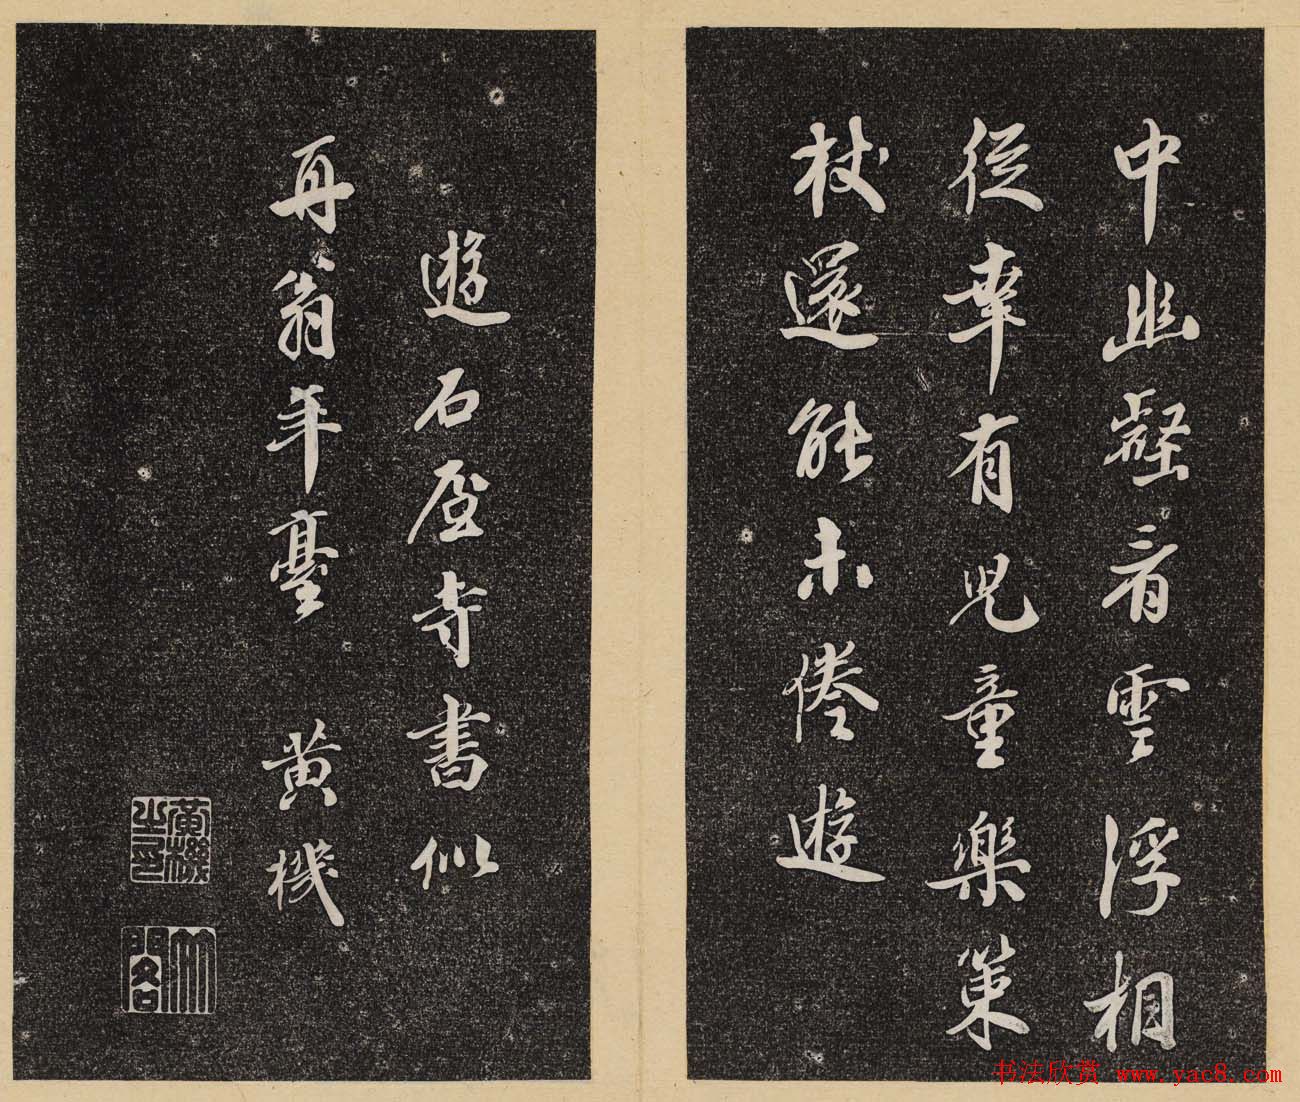 中幽壑看雲浮相
從幸有兒童樂策
杖還能未倦遊
遊石屋寺書似
再翁年臺 黃機
黃機之印
书法欣赏 www.yac8.com